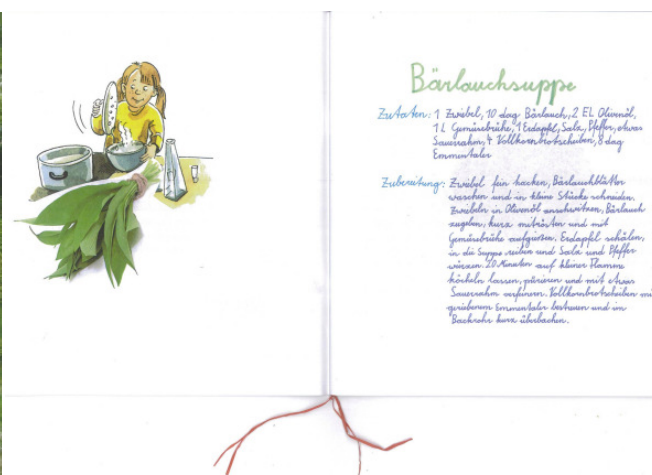 Bärlauchsuppe
Zutaten: 1 Zwiebel, 10 dag Bärlauch, 2 EL Olivenöl,
1 L Gemüsebrühe, 1 Erdapfel, Salz, Pfeffer, etwas
Sauerrahm, 4 Vollkornbrotscheiben, 8 dag
Emmentaler
Zubereitung: Zwiebel fein hacken, Bärlauchblätter
waschen und in kleine Stücke schneiden.
Zwiebeln in Olivenöl anschwitzen, Bärlauch
zugeben, kurz mitrösten und mit
Gemüsebrühe aufgießen. Erdapfel schälen,
in die Suppe reiben und Salz und Pfeffer
würzen. 20 Minuten auf kleiner Flamme
köcheln lassen, pürieren und mit etwas
Sauerrahm verfeinern. Vollkornbrotscheiben mi
geriebenem Emmentaler bestreuen und im
Backrohr kurz überbacken.